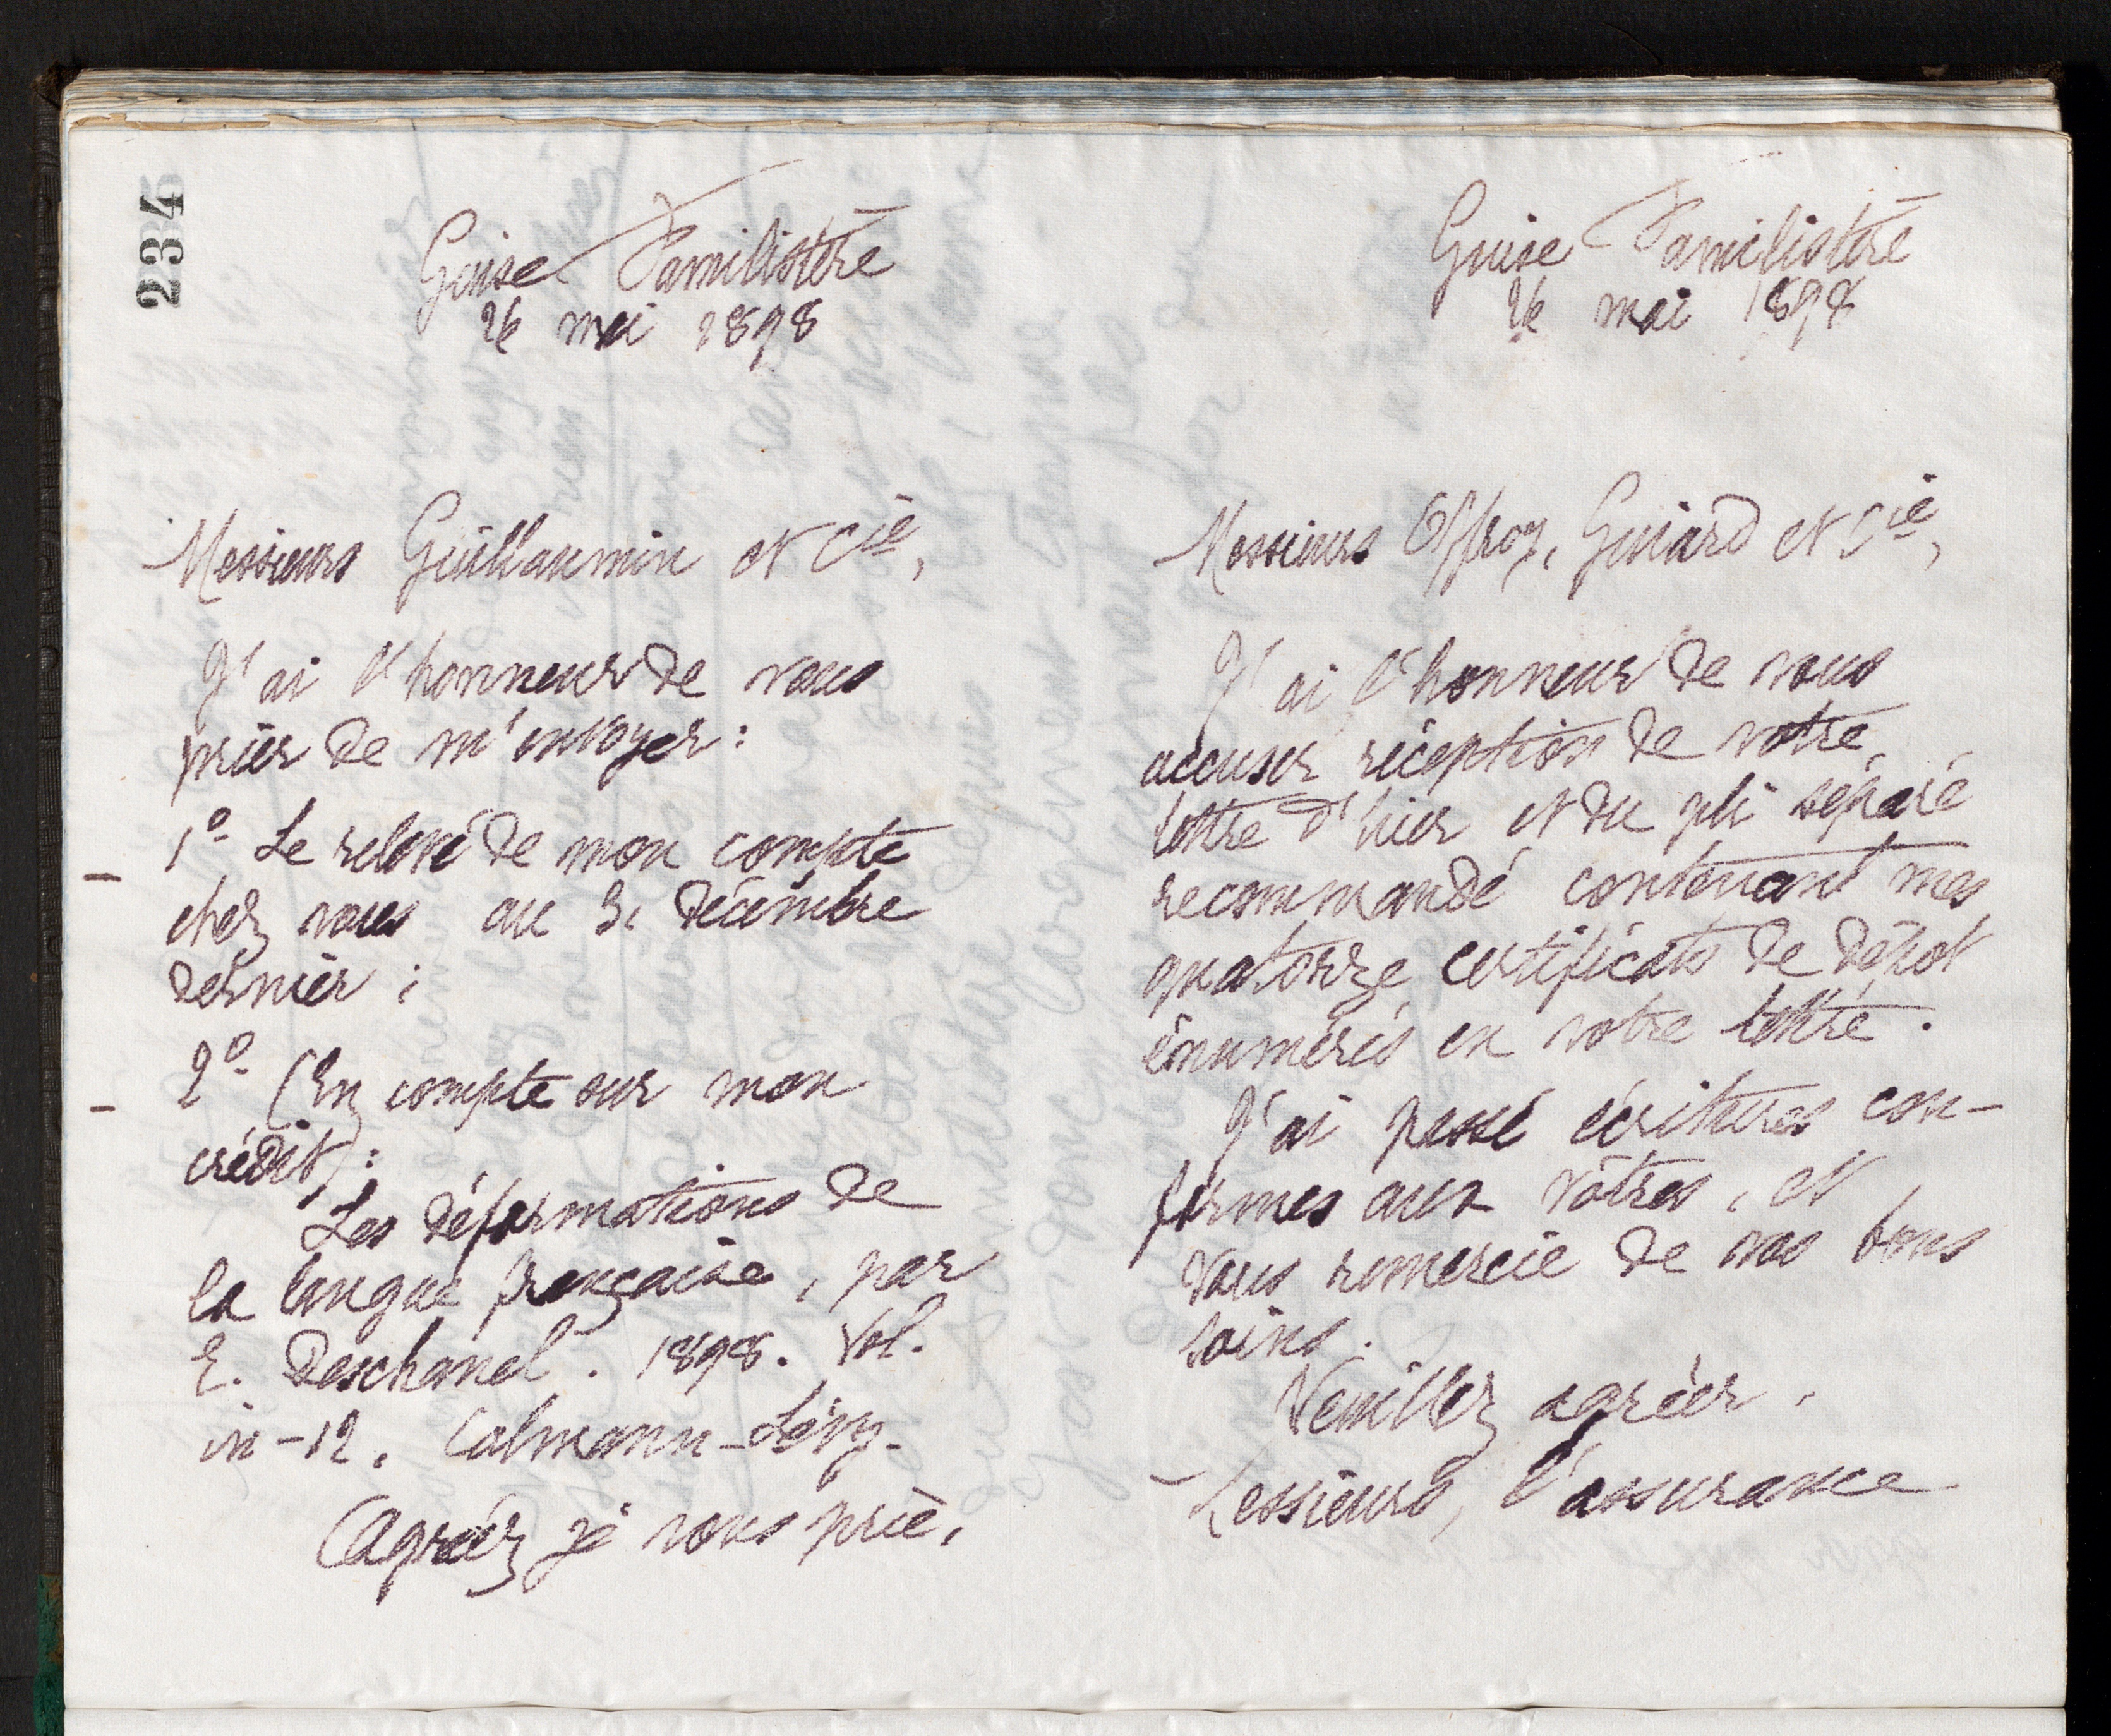 234
Guise Familistère
26 mai 1898
Messieurs Guillaumin et Cie,
J'ai l'honneur de vous
prier de m'envoyer :
1º Le relevé de mon compte
chez vous au 31 décembre
dernier ;
2º (En compte sur mon
crédit) :
Les déformations de
la langue française, par
E. Deschanel. 1898. Vol.
in-12. Calmann-Lévy.
Agréez je vous prie,
Guise Familistère
26 mai 1898
Messieurs Offroy, Guiard et Cie,
J'ai l'honneur de vous
accuser réception de votre
lettre d'hier et du pli séparé
recommandé contenant mes
quatorze certificats de dépôt
énumérés en votre lettre.
J'ai passé écritures con-
formes aux vôtres, et
vous remercie de vos bons
soins.
Veuillez agréer,
Messieurs, l'assurance